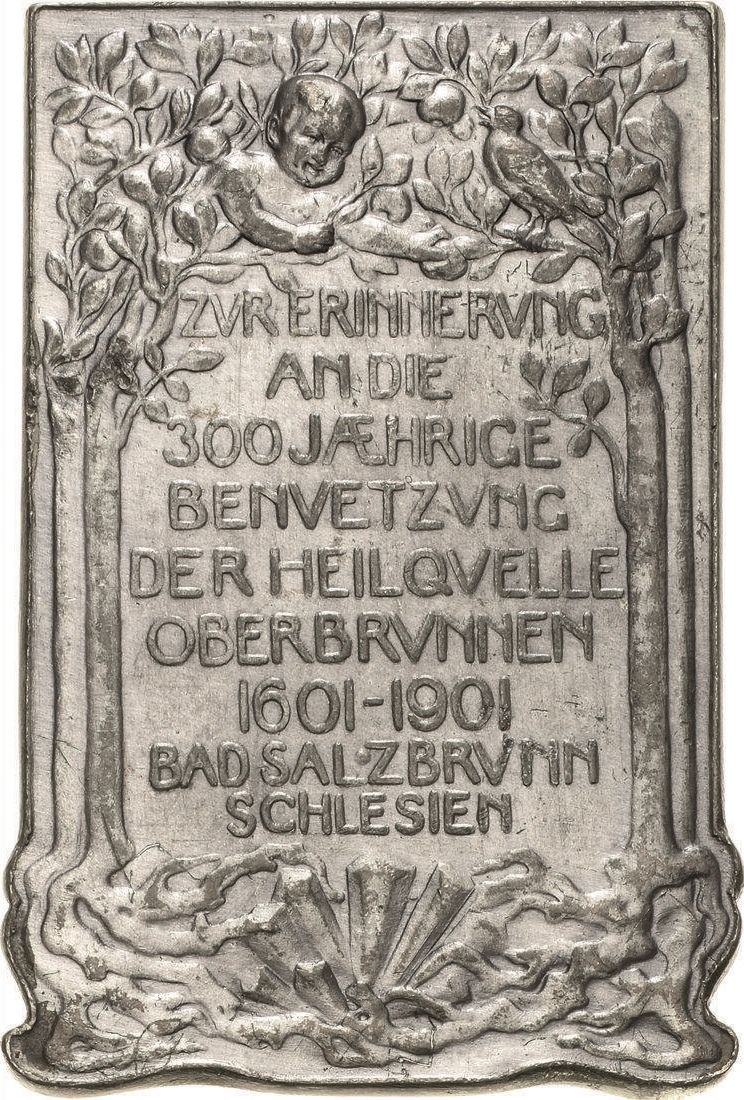 ZVR ERINNERVNG
AN DIE
300 JÆHRIGE
BENVETZVNG
DER HEILQVELLE
OBERBRVNNEN
1601-1901
BAD SALZBRVNN
SCHLESIEN